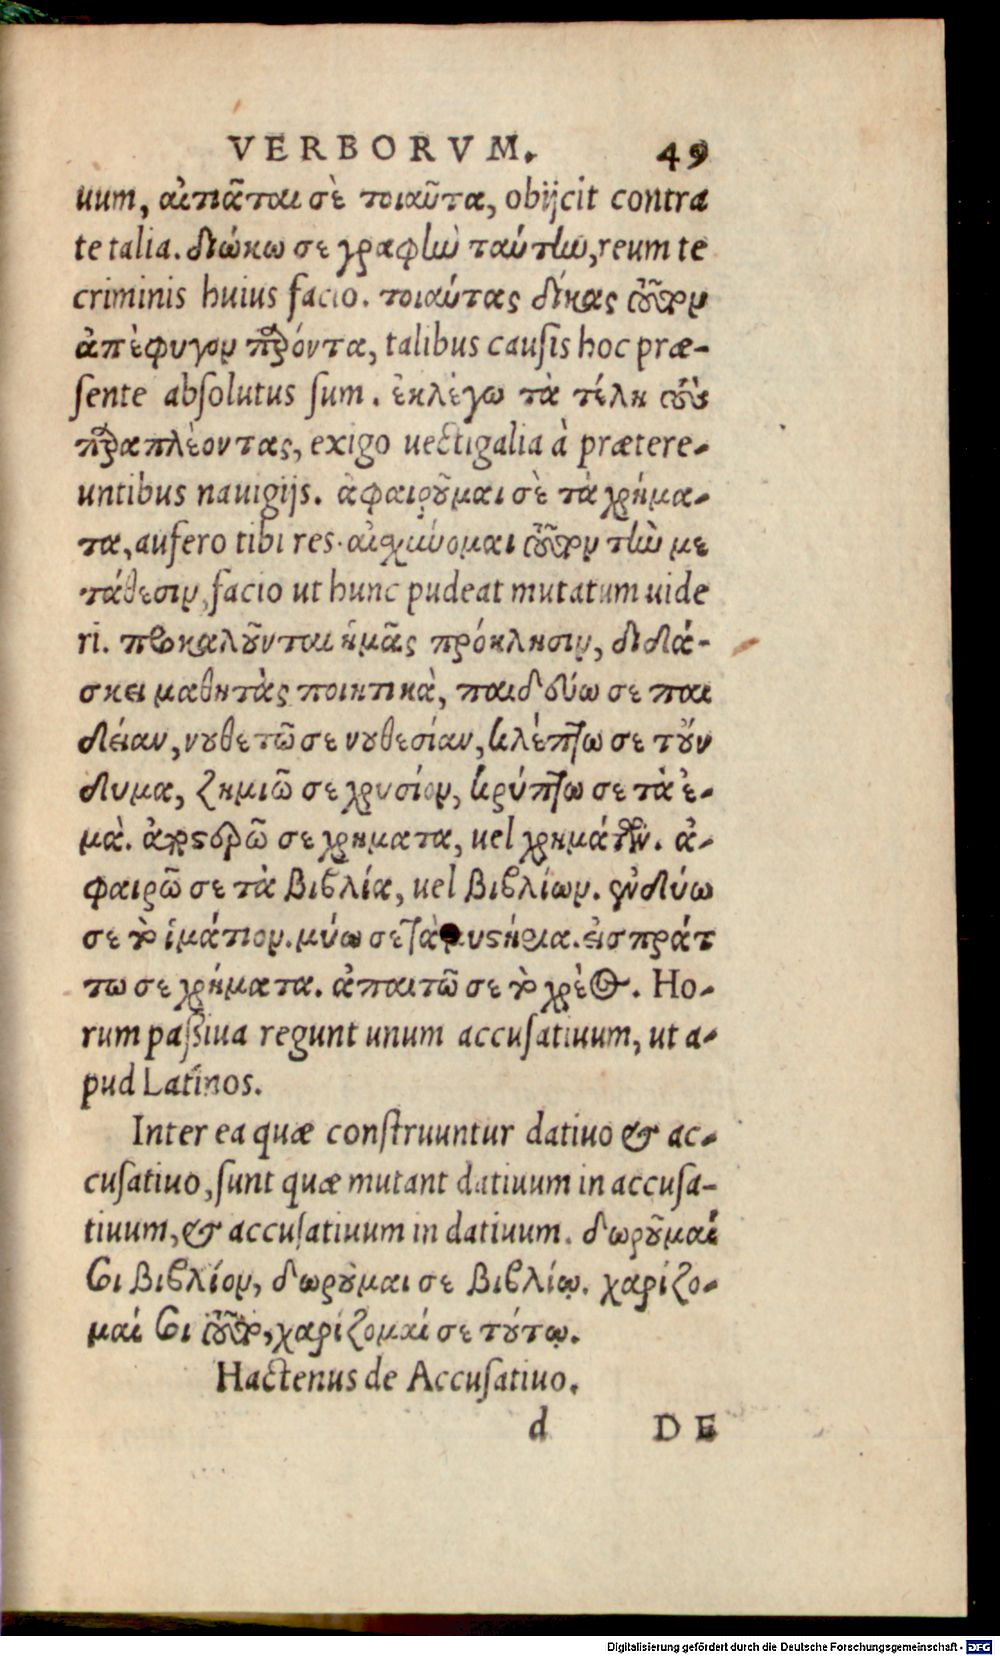 VERBORVM. 49
uum, αἰτιᾶται σὲ τοιαῦτα, obijcit contra
te talia. διώκω σε γραφὴν ταύτην, reum te
criminis huius facio. τοιαύτας δίκας τοῦτον
ἀπέφυγον παρόντα, talibus causis hoc præ-
sente absolutus sum. ἐκλέγω τὰ τέλη τοὺς
παραπλέοντας, exigo uectigalia à prætere-
untibus nauigijs. ἀφαιροῦμαι σὲ τὰ χρήμα-
τα, aufero tibi res. αἰσχύνομαι τοῦτον τὴν με
τάθεσιν, facio ut hunc pudeat mutatum uide
ri. προκαλοῦνται ἡμᾶς πρόκλησιν, διδά-
σκει μαθητὰς ποιητικὰ, παιδεύω σε παι
δείαν, νουθετῶ σε νουθεσίαν, κλέπτω σε τοὔν
δυμα, ζημιῶ σε χρυσίον, κρύπτω σε τὰ ἐ-
μὰ. ἀποστερῶ σε χρηματα, uel χρημάτων. ἀ-
φαιρῶ σε τὰ βιβλία, uel βιβλίων. ἐνδύω
σε τὸ ἱμάτιον. μύω σε τὰ μυστήρια. εἰσπράτ
τω σε χρήματα. ἀπαιτῶ σε τὸ χρὲος. Ho-
rum passiua regunt unum accusatiuum, ut a-
pud Latinos.
Inter ea quæ construuntur datiuo & ac-
cusatiuo, sunt quæ mutant datiuum in accusa-
tiuum, & accusatiuum in datiuum. δωροῦμαί
σοι βιβλίον, δωροὺμαι σε βιβλίῳ. χαρίζο-
μαί σοι τοῦτο, χαρίζομαί σε τούτῳ.
Hactenus de Accusatiuo.
d DE
Digitalisierung gefördert durch die Deutsche Forschungsgemeinschaft - DFG